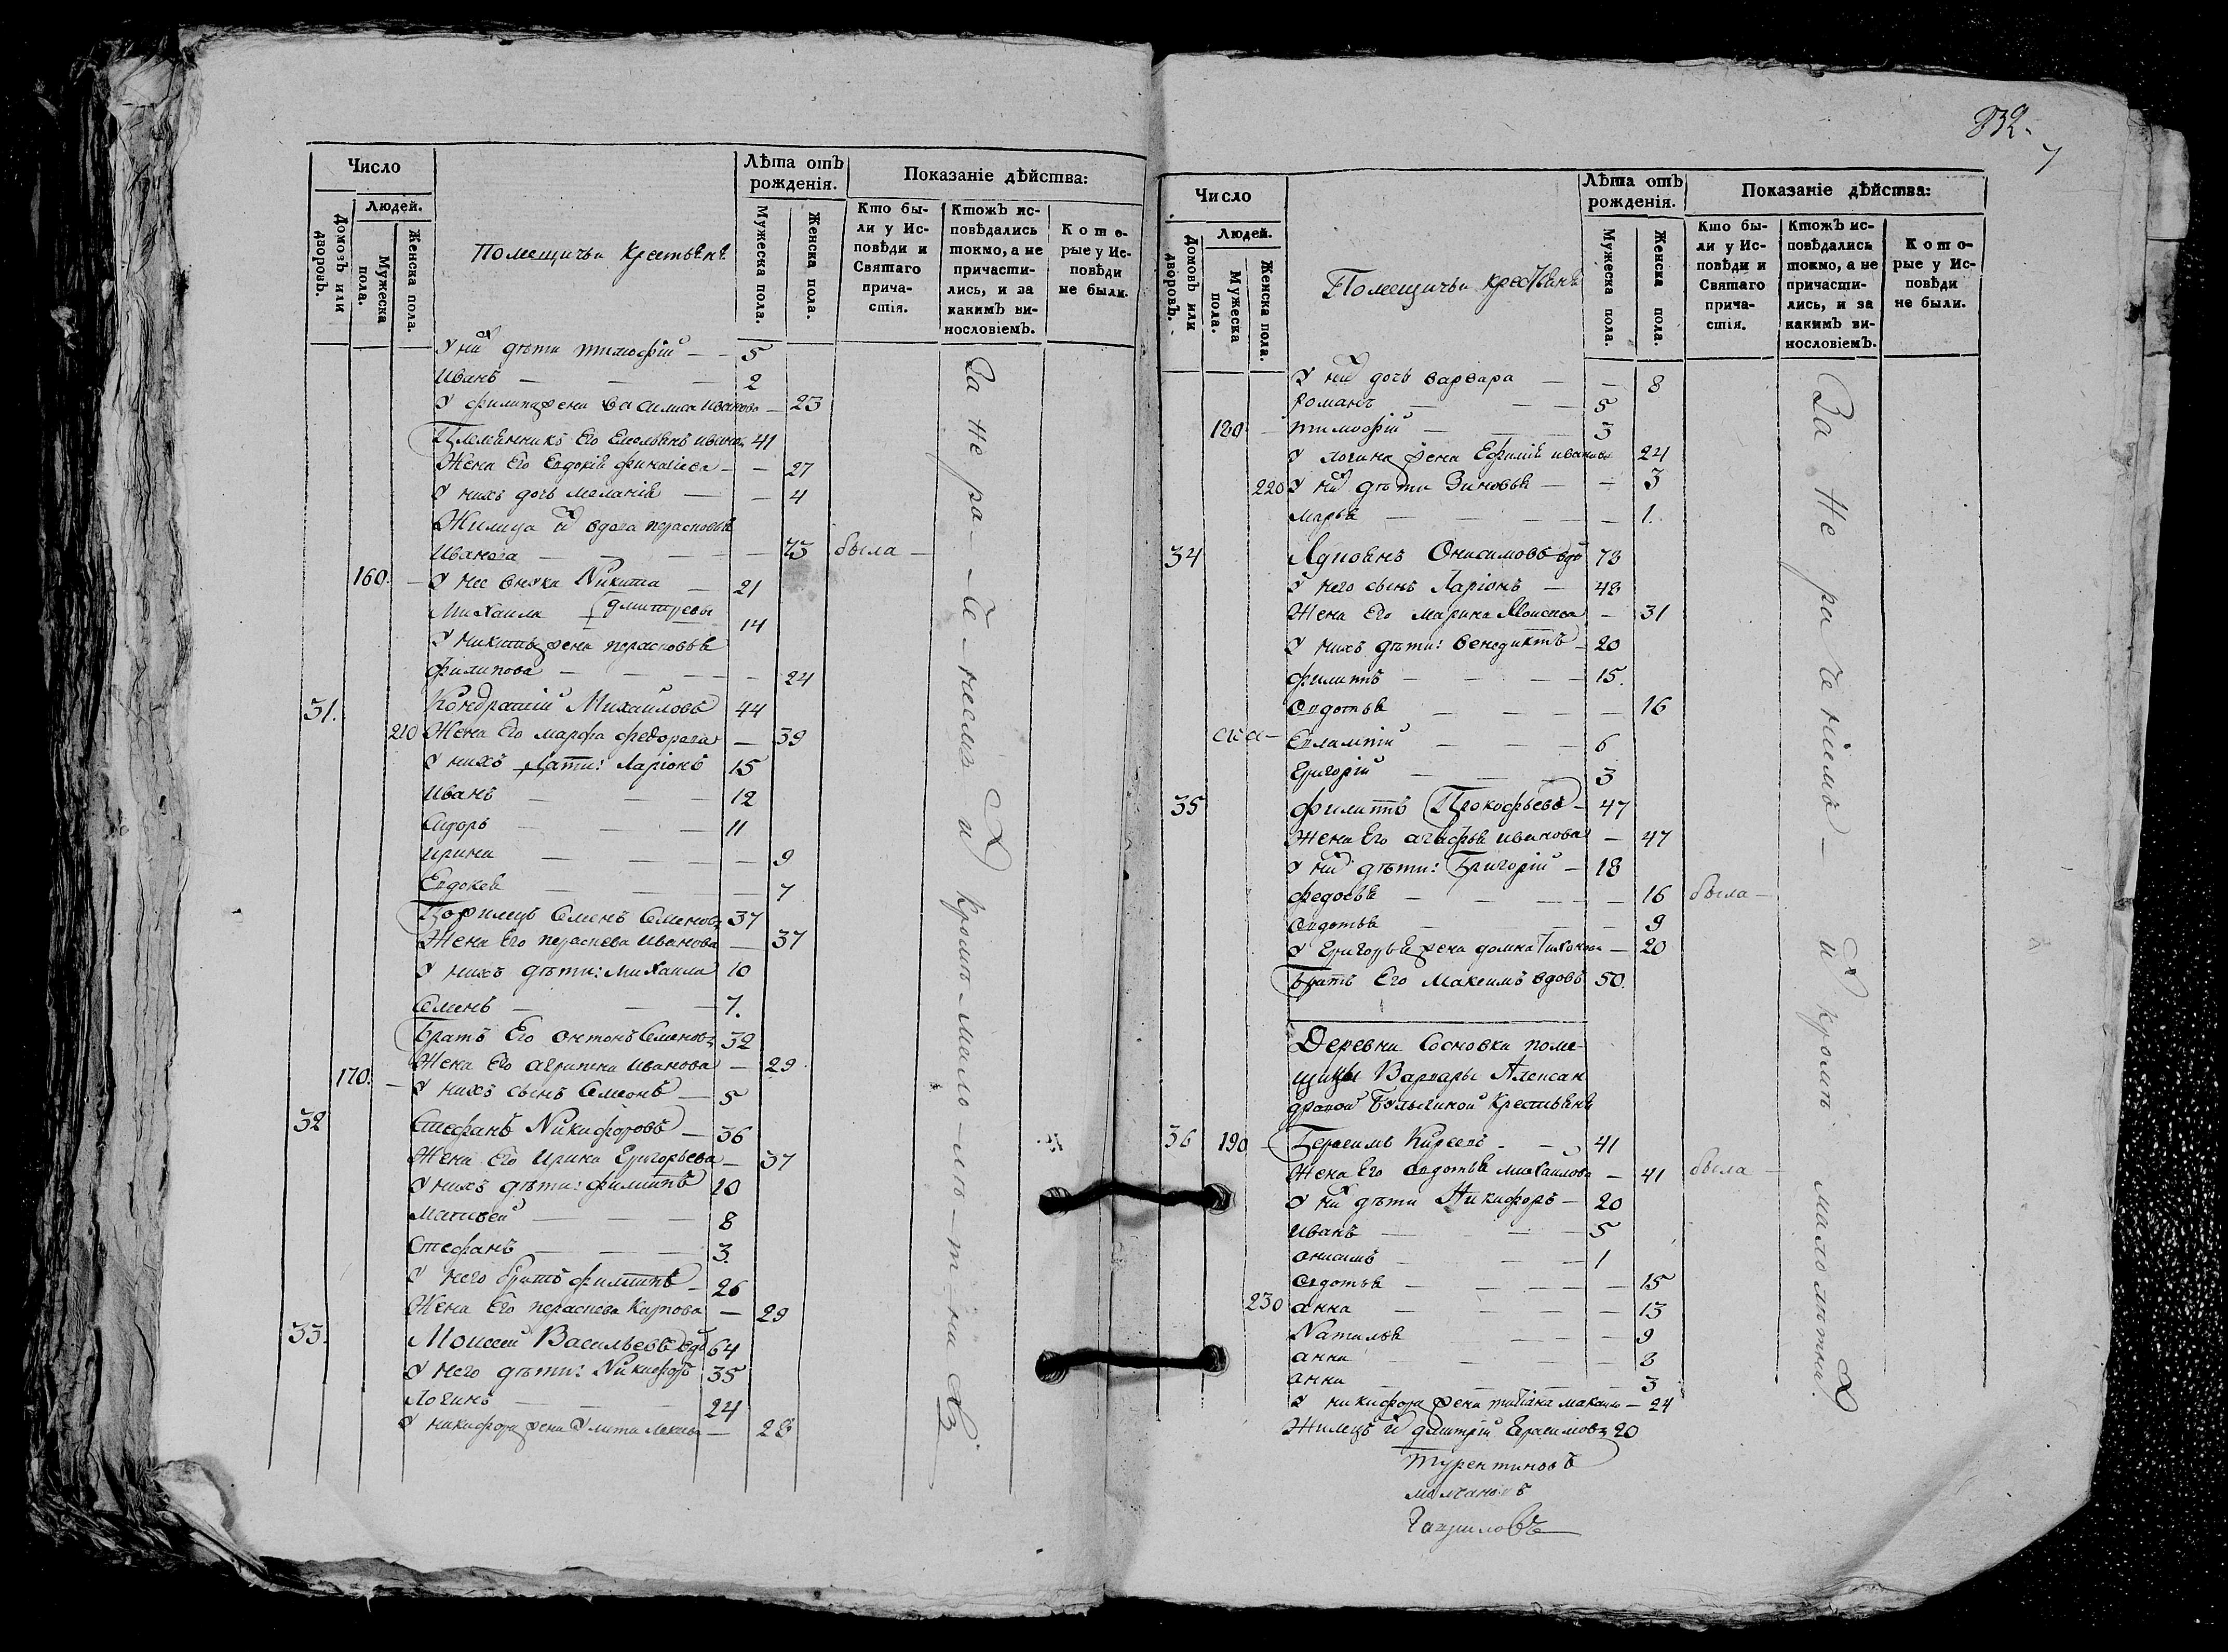 Число
Лѣта отъ рожденія.
Показаніе дѣйства:
Людей.
Домовъ или дворовъ.
Мужеска пола.
Женска пола.
Помещичьи крестьяне
Мужеска пола.
Женска пола.
Кто были у Исповѣди и Святаго причастія.
Ктожъ исповѣдались токмо, а не причастились, и за какимъ винословіемъ.
Которые у Исповѣди не были.
У них дѣти тимофѣй — 5
Иванъ — 2
У филипа жена василиса иванова — 23
Племянникъ Его Емельянъ иванов 41
Жена Его Евдокия — 27
У нихъ дочь меланія — 4
Жилица их вдова парасковья
Иванова — 73 была —
160 У нее внуки Никита — 21
Михаила дмитревы 14
У никиты жена парасковья
филипова — 24
31. Кондратий Михайловъ 44
210 Жена Его марфа федорова — 39
У нихъ дѣти: ларіонъ 15
иванъ — 12
сидоръ — 11
ирина — 9
Евдокея — 7
Семенъ Семеновъ 37
Жена Его Иванова — 37
У нихъ дѣти: михаила 10
Семенъ — 7.
Братъ Его антонъ Семеновъ 32
Жена Его агрипена иванова — 29
170. У нихъ сынъ Семионъ — 5
32 Стефанъ Никифоровъ — 36
Жена Его Ирина Григорьева — 37
У нихъ дѣти: филиппъ 10
матвей — 8
Стефанъ — 3.
У него братъ филиппъ — 26
Жена Его Карпова — 29
33. Моисей Васильевъ вдов 64
У него дѣти: Никифоръ 35
Логинъ — 24
У никифора жена — 28
За не ра-че-ніемъ и кромѣ мало-лѣ-т-ни хъ
832.
7
Число
Лѣта отъ рожденія.
Показаніе дѣйства:
Людей.
Домовъ или дворовъ.
Мужеска пола.
Женска пола.
Помещичьи крестьяне
Мужеска пола.
Женска пола.
Кто были у Исповѣди и Святаго причастія.
Ктожъ исповѣдались токмо, а не причастились, и за какимъ винословіемъ.
Которые у Исповѣди не были.
У них дочь варвара — 8
Романъ — 5
180 тимофѣй — 3
У логина жена Ефимия иванова 24
220 У них дѣти Зиновья — 3
марья — 1.
34 Онисимовъ вдов 73
У него сынъ Ларіонъ — 48
Жена Его марина — 31
У нихъ дѣти: венедиктъ — 20
филиппъ — 15.
Овдотья — 16
Евлампий — 6
Григорій — 3
35 филиппъ Прокофьевъ — 47
Жена Его агафья иванова — 47
У них дѣти: Григорій — 18
федосья — 16 была —
Овдотья — 9
У Григорья жена домна — 20
Братъ Его Максимъ вдовъ 50.
Деревни Сосновки поме-
щицы Варвары Алексан
дровой крестьяне
36 190 Герасимъ — 41
Жена Его овдотья михайлова — 41 была —
У них дѣти Никифоръ — 20
иванъ — 5
онисимъ — 1
овдотья — 15
230 анна — 13
Наталья — 9
анна — 8
анна — 3
У никифора жена татіана — 24
Жилецъ их дмитрій Герасимовъ 20
За не ра че ніемъ — и кромѣ малолѣтних